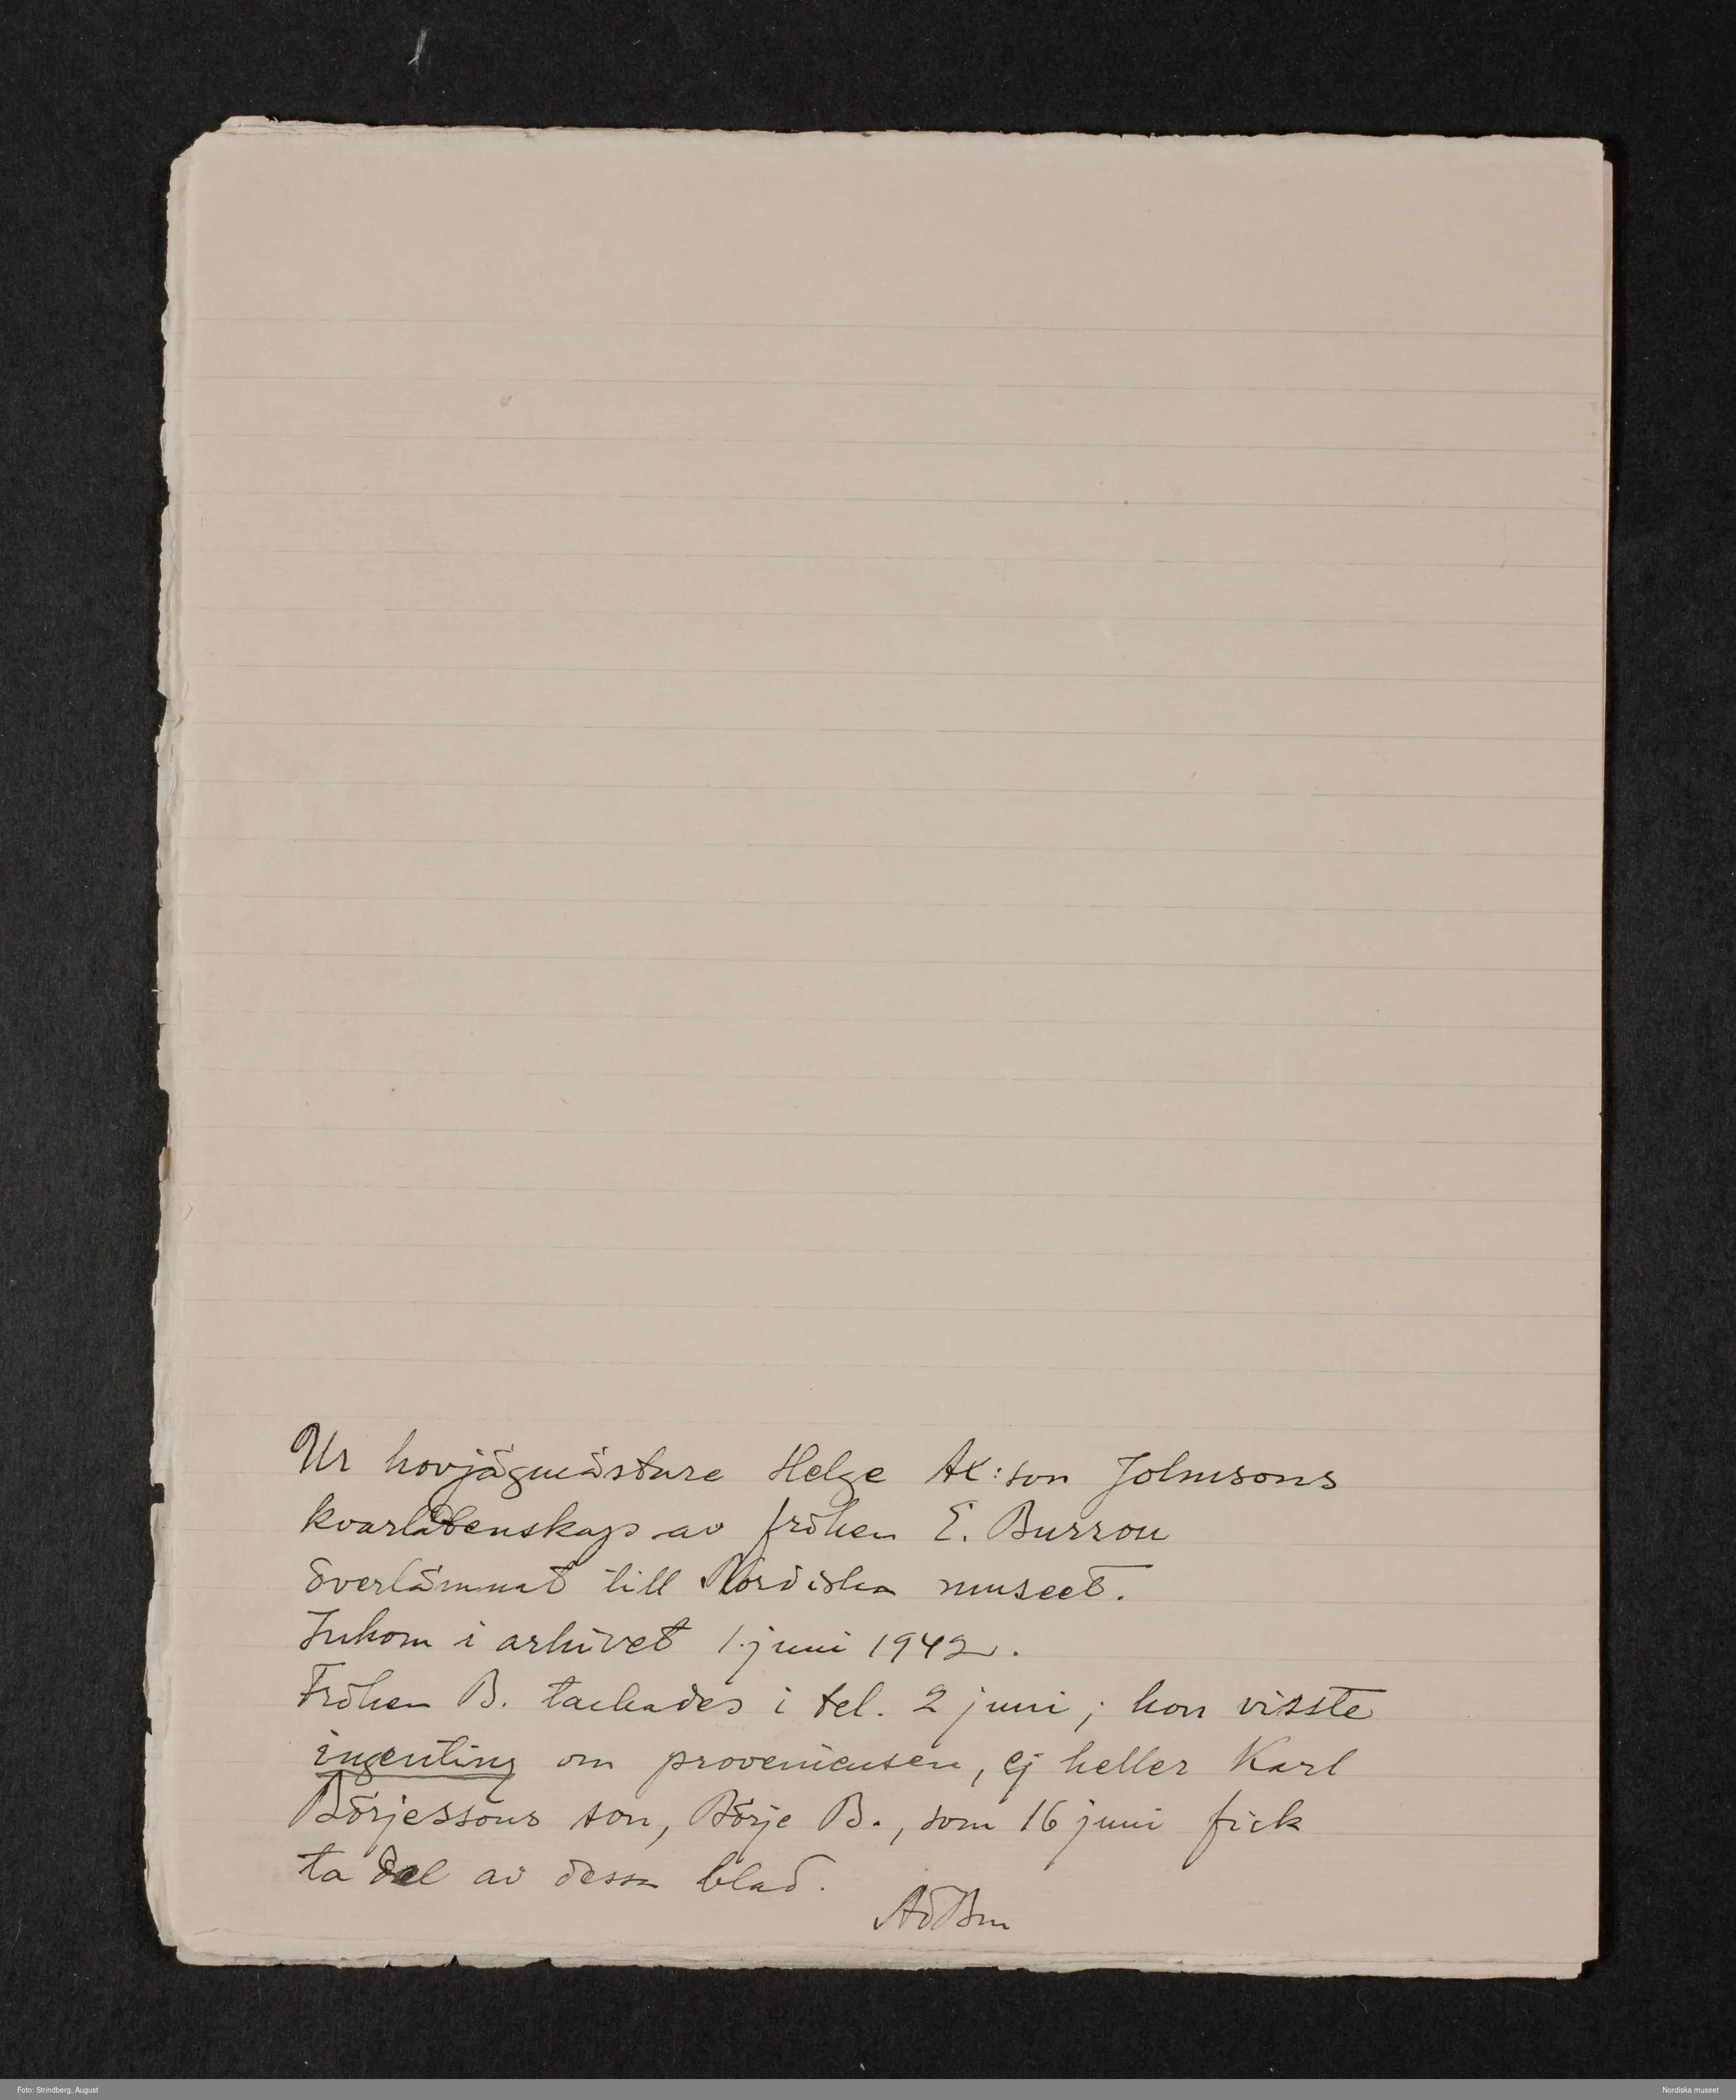 Ur hovjägmästare Helge Ax:son Johnsons
kvarlåtenskap av fröken E. Burrou
överlämnat till Nordiska museet.
Inkom i arkivet 1 juni 1942.
Fröken B. tackades i tel. 2 juni; hon visste
ingenting om proveniensen, ej heller Karl
Börjessons son, Börje B., som 16 juni fick
ta del av dessa blad.
Foto: Strindberg, August
Nordiska museet